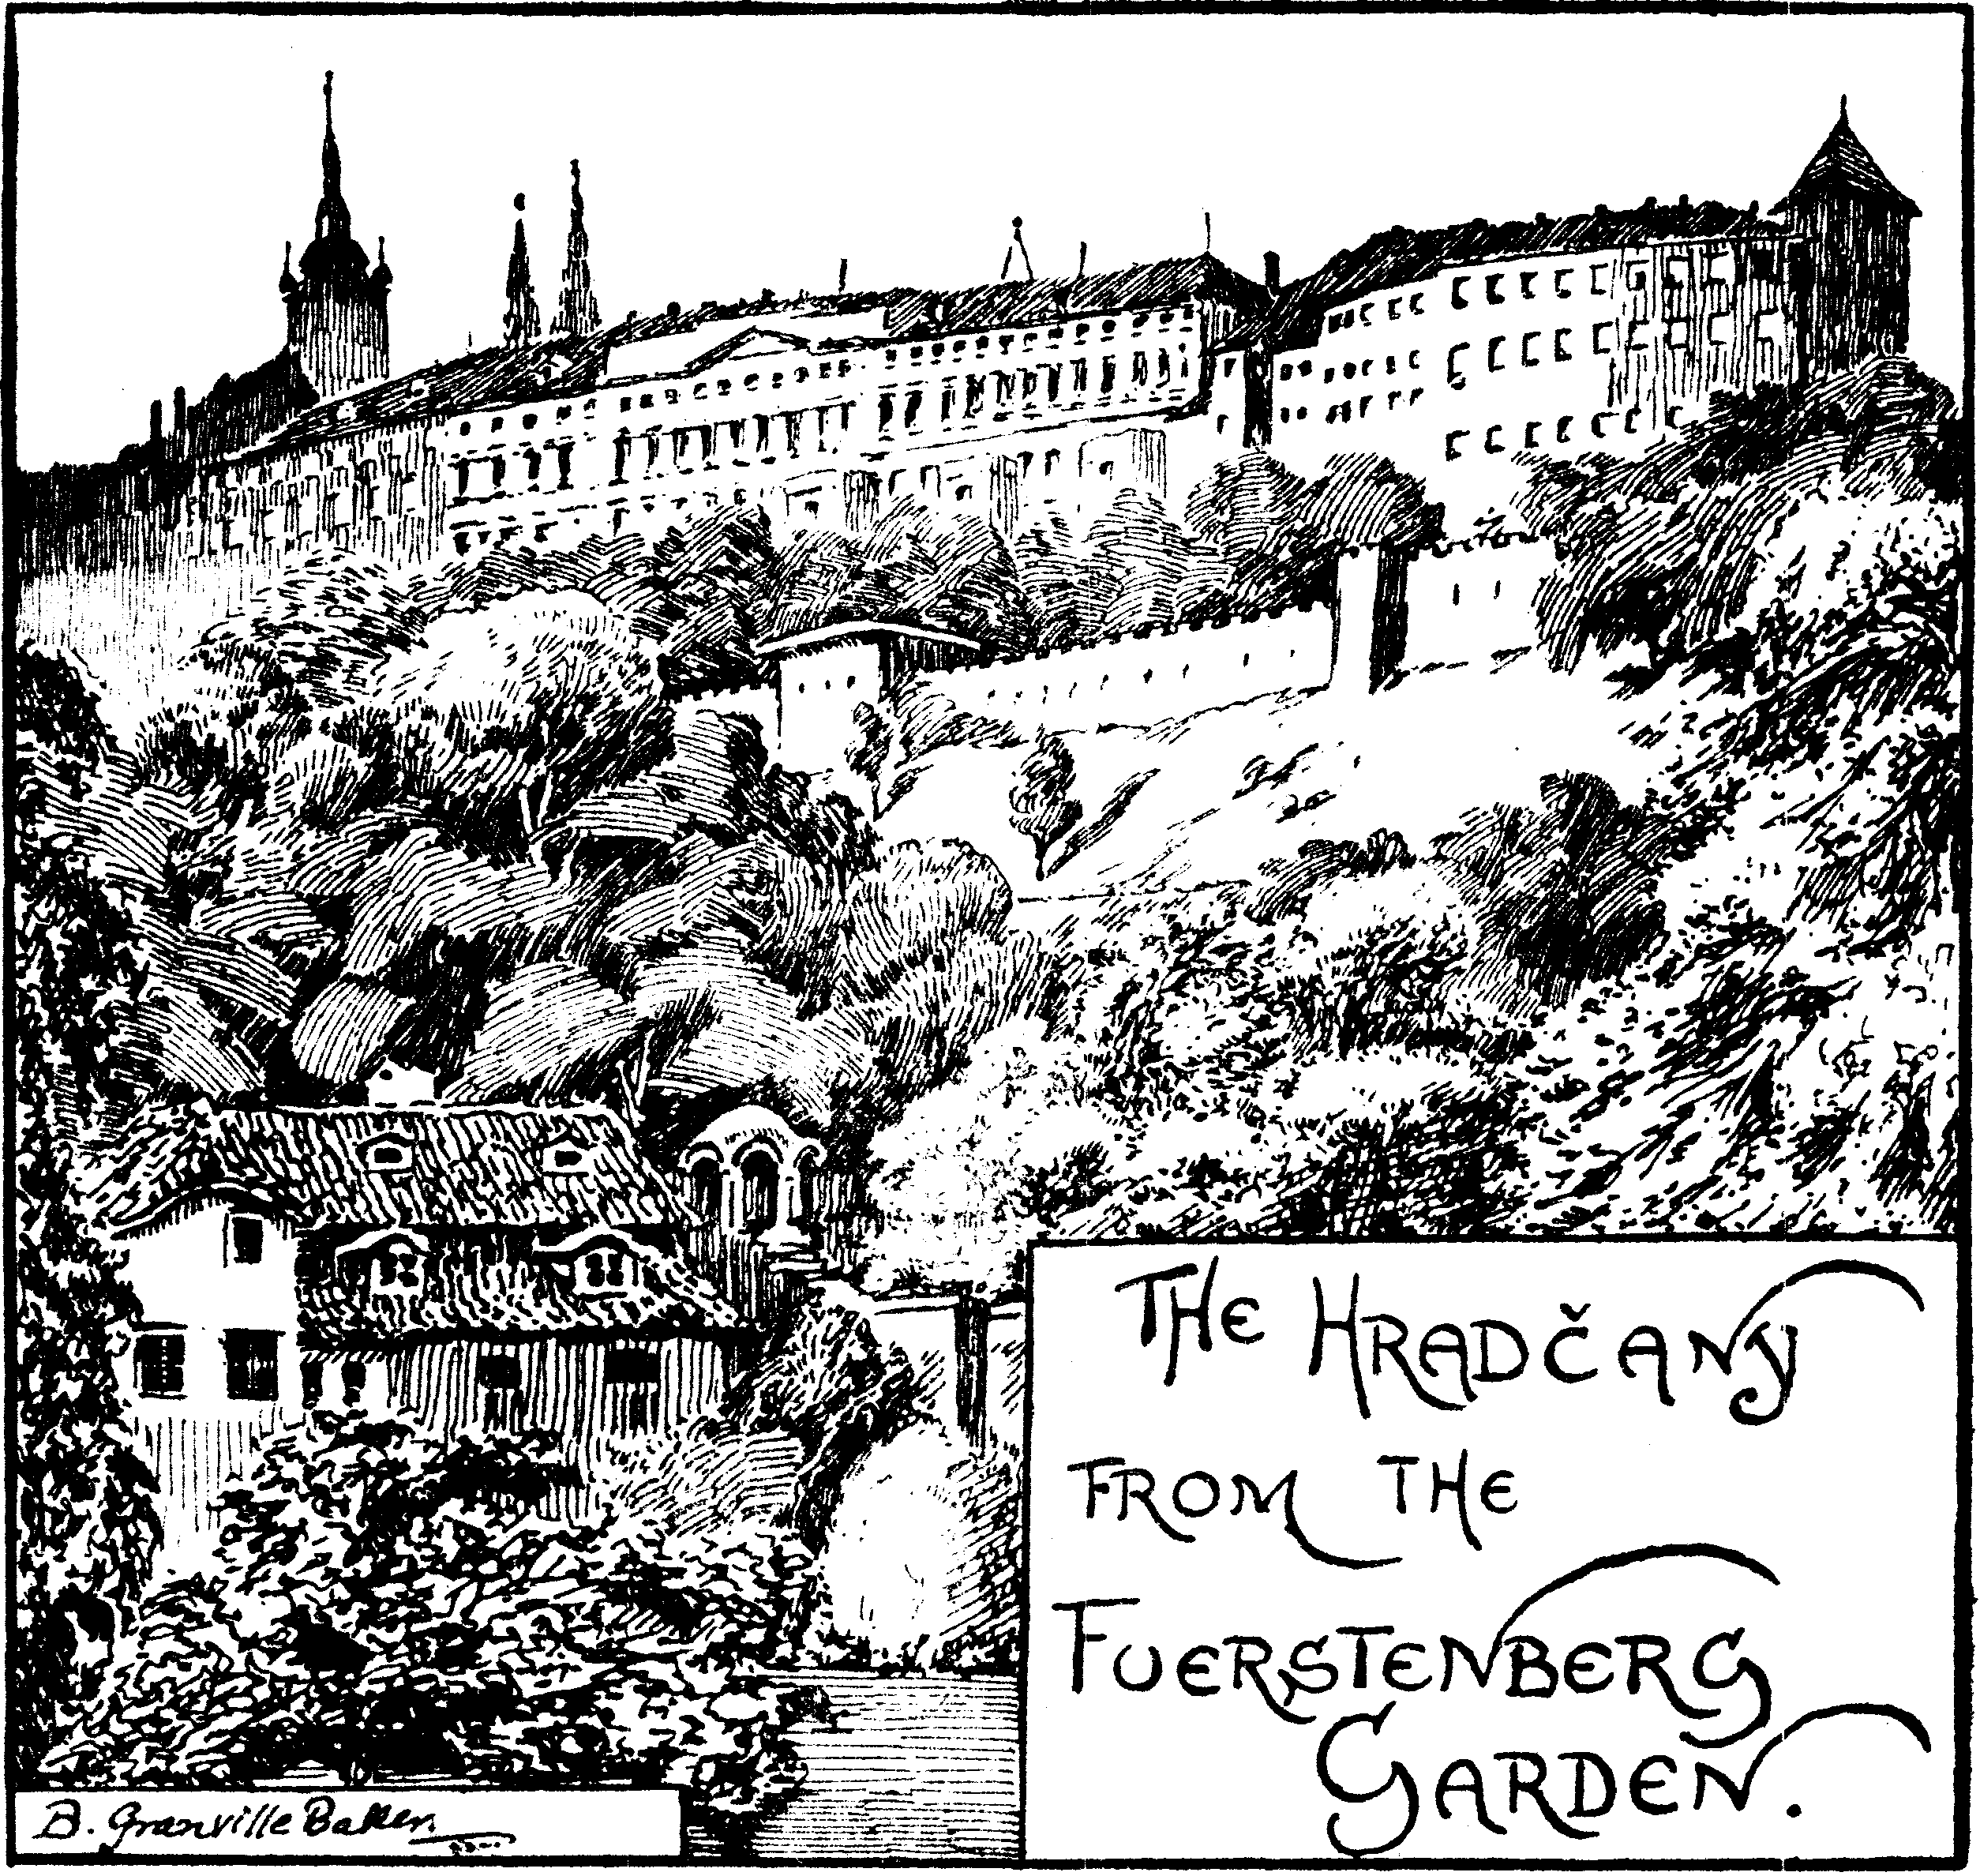 THE HRADČANY
FROM THE
FUERSTENBERG
GARDEN.
B. Granville Baker.